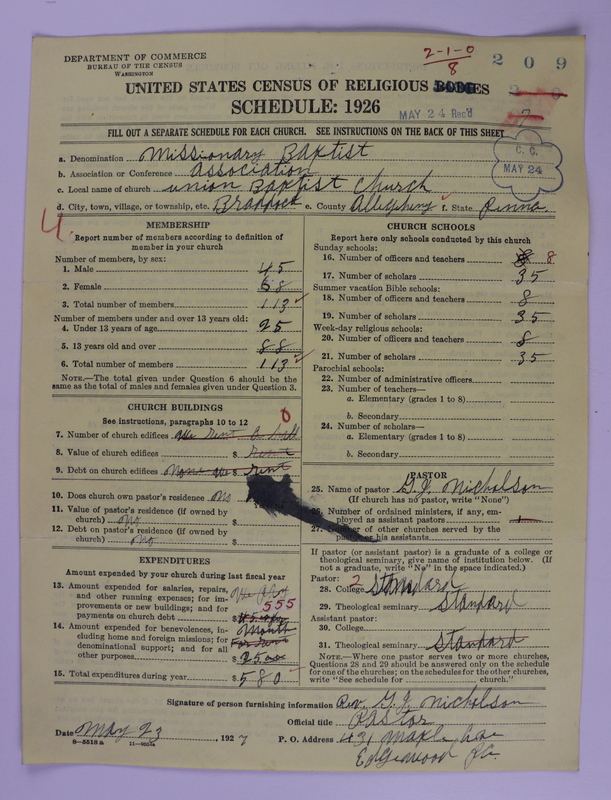 2-1-0
8
209
DEPARTMENT OF COMMERCE
BUREAU OF THE CENSUS
WASHINGTON
UNITED STATES CENSUS OF RELIGIOUS BODIES
SCHEDULE: 1926
MAY 24 Rec'd
7
FILL OUT A SEPARATE SCHEDULE FOR EACH CHURCH. SEE INSTRUCTIONS ON THE BACK OF THIS SHEET
C. C.
MAY 24
a. Denomination Missionary Baptist
b. Association or Conference Association
c. Local name of church union Baptist Church
d. City, town, village, or township, etc. Braddock e. County Allegheny f. State Penna.
4.
MEMBERSHIP
Report number of members according to definition of
member in your church
Number of members, by sex:
1. Male 45
2. Female 68
3. Total number of members 113
Number of members under and over 13 years old:
4. Under 13 years of age 25
5. 13 years old and over 88
6. Total number of members 113
NOTE.—The total given under Question 6 should be the
same as the total of males and females given under Question 3.
CHURCH BUILDINGS
See instructions, paragraphs 10 to 12
0
7. Number of church edifices We Rent a hall
8. Value of church edifices $ Rent
9. Debt on church edifices None We $ Rent
10. Does church own pastor's residence No
11. Value of pastor's residence (if owned by
church) No $
12. Debt on pastor's residence (if owned by
church) No $
EXPENDITURES
Amount expended by your church during last fiscal year
13. Amount expended for salaries, repairs,
and other running expenses; for im-
provements or new buildings; and for 555
payments on church debt $
14. Amount expended for benevolences, in- Month
cluding home and foreign missions; for
denominational support; and for all
other purposes $ 25.00
15. Total expenditures during year $ 580
CHURCH SCHOOLS
Report here only schools conducted by this church
Sunday schools:
16. Number of officers and teachers 8 8
17. Number of scholars 35
Summer vacation Bible schools:
18. Number of officers and teachers 8
19. Number of scholars 35
Week-day religious schools:
20. Number of officers and teachers 8
21. Number of scholars 35
Parochial schools:
22. Number of administrative officers
23. Number of teachers—
a. Elementary (grades 1 to 8)
b. Secondary
24. Number of scholars—
a. Elementary (grades 1 to 8)
b. Secondary
PASTOR
25. Name of pastor G. J. Nicholson
(If church has no pastor, write "None")
26. Number of ordained ministers, if any, em-
ployed as assistant pastors 1
27. Number of other churches served by the
pastor or his assistants
If pastor (or assistant pastor) is a graduate of a college or
theological seminary, give name of institution below. (If
not a graduate, write "No" in the space indicated.)
Pastor: 2
28. College Standard
29. Theological seminary Standard
Assistant pastor:
30. College
31. Theological seminary Standard
NOTE.—Where one pastor serves two or more churches,
Questions 28 and 29 should be answered only on the schedule
for one of the churches; on the schedules for the other churches,
write "See schedule for church."
Signature of person furnishing information Rev. G. J. Nicholson
Official title Pastor
Date May 23, 1927 P. O. Address 431 Maple Ave
8—5518a 11—9034a Edgewood Pa.